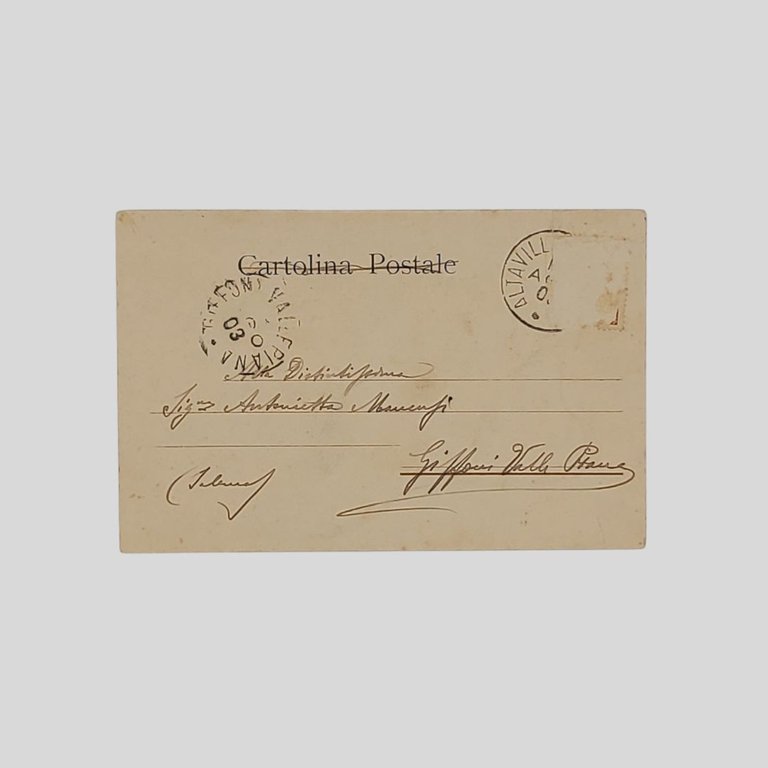 Cartolina Postale
ALTAVILL
GIFFONI VALLEPIANA
03
Alla Distintissima
Sig.na Antonietta Mancusi
Giffoni Valle Piana
(Salerno)